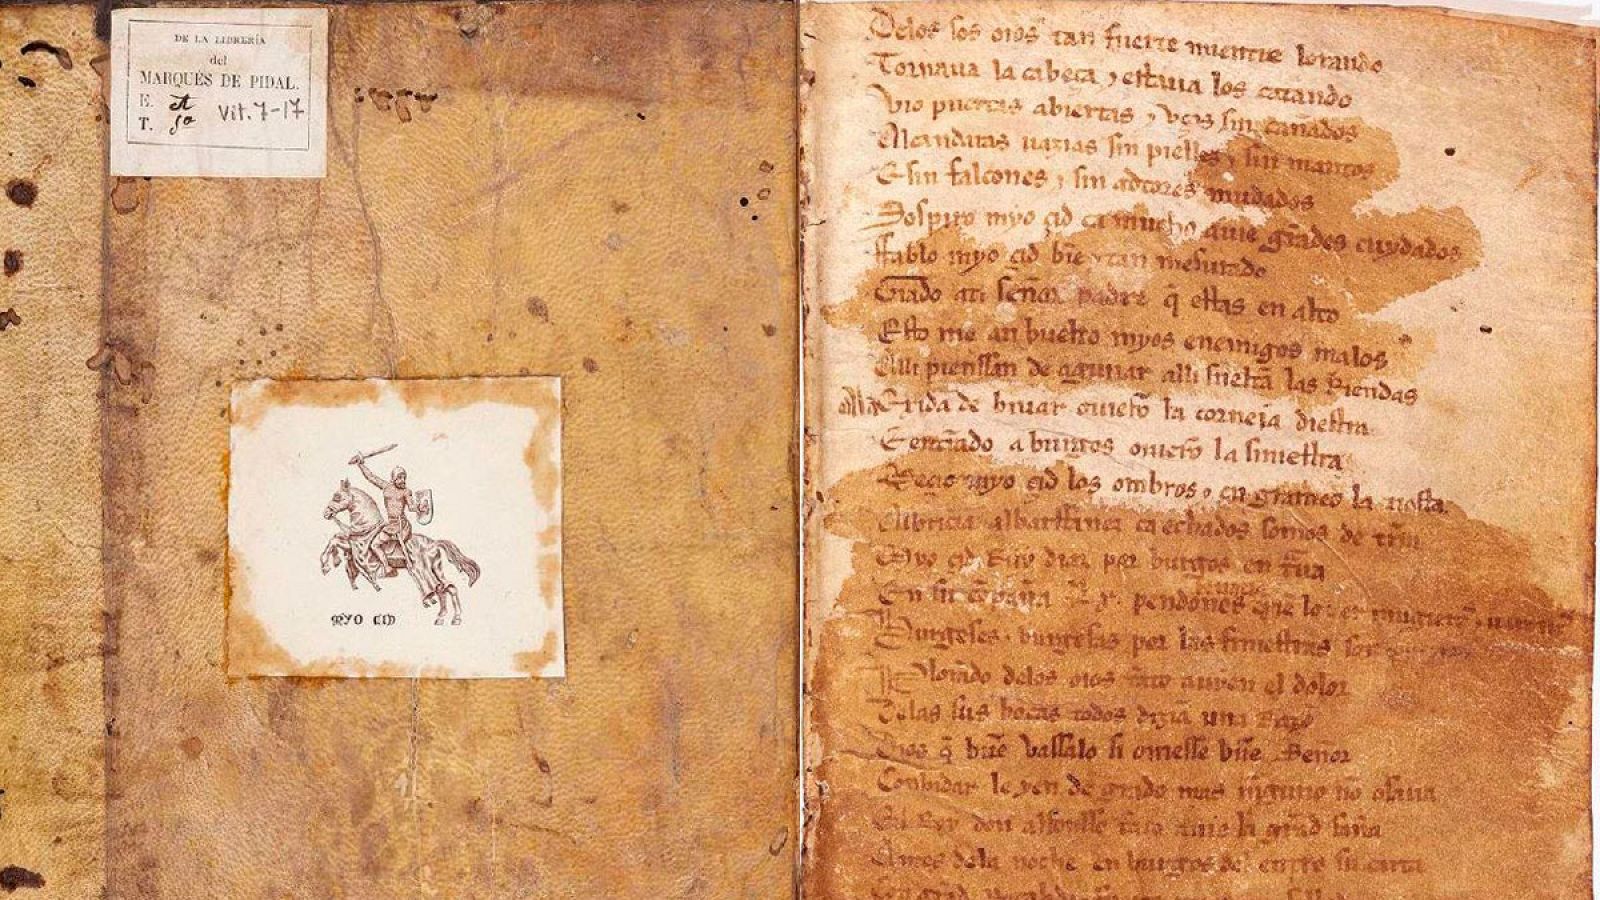 DE LA LIBRERÍA
del
MARQUÉS DE PIDAL.
E.
T.
Vit. 7-17
MYO CID
Delos sos oios tan fuerte mientre lorando
Tornaua la cabeça ⁊ estaua los catando
Vio puertas abiertas ⁊ vços sin cañados
Alcandaras uazias sin pielles ⁊ sin mantos
E sin falcones ⁊ sin adtores mudados
Sospiro myo çid ca mucho auie grãdes cuydados
Ffablo myo çid biẽ ⁊ tan mesurado
Grado ati señor padre q̃ estas en alto
Esto me an buelto myos enemigos malos
Alli pienssan de aguiiar alli sueltã las Riendas
Ala Exida de biuar ouierõ la corneia diestra
E entrãdo a burgos ouierõ la siniestra
Meçio myo çid los ombros ⁊ en grameo la tiesta
Albricia albarffanez ca echados somos de trr̃a
Myo çid Ruy diaz por burgos en traua
En su cõpaña pendones
Burgeses ⁊ burgesas por las finiestras son
Plorãdo delos oios tãto auyen el dolor
Delas sus bocas todos dizian una Razõ
Dios q̃ buẽ vassalo si ouiesse buẽ Señor
Conbidar le yen de grado mas nĩguno nõ osaua
El Rey don alfonsso tãto auie la grãd saña
Antes dela noche en burgos del entro su carta